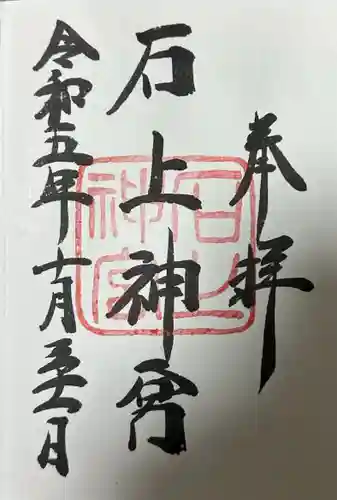 奉拝
石上神宮
令和五年十月日
石上
神宮